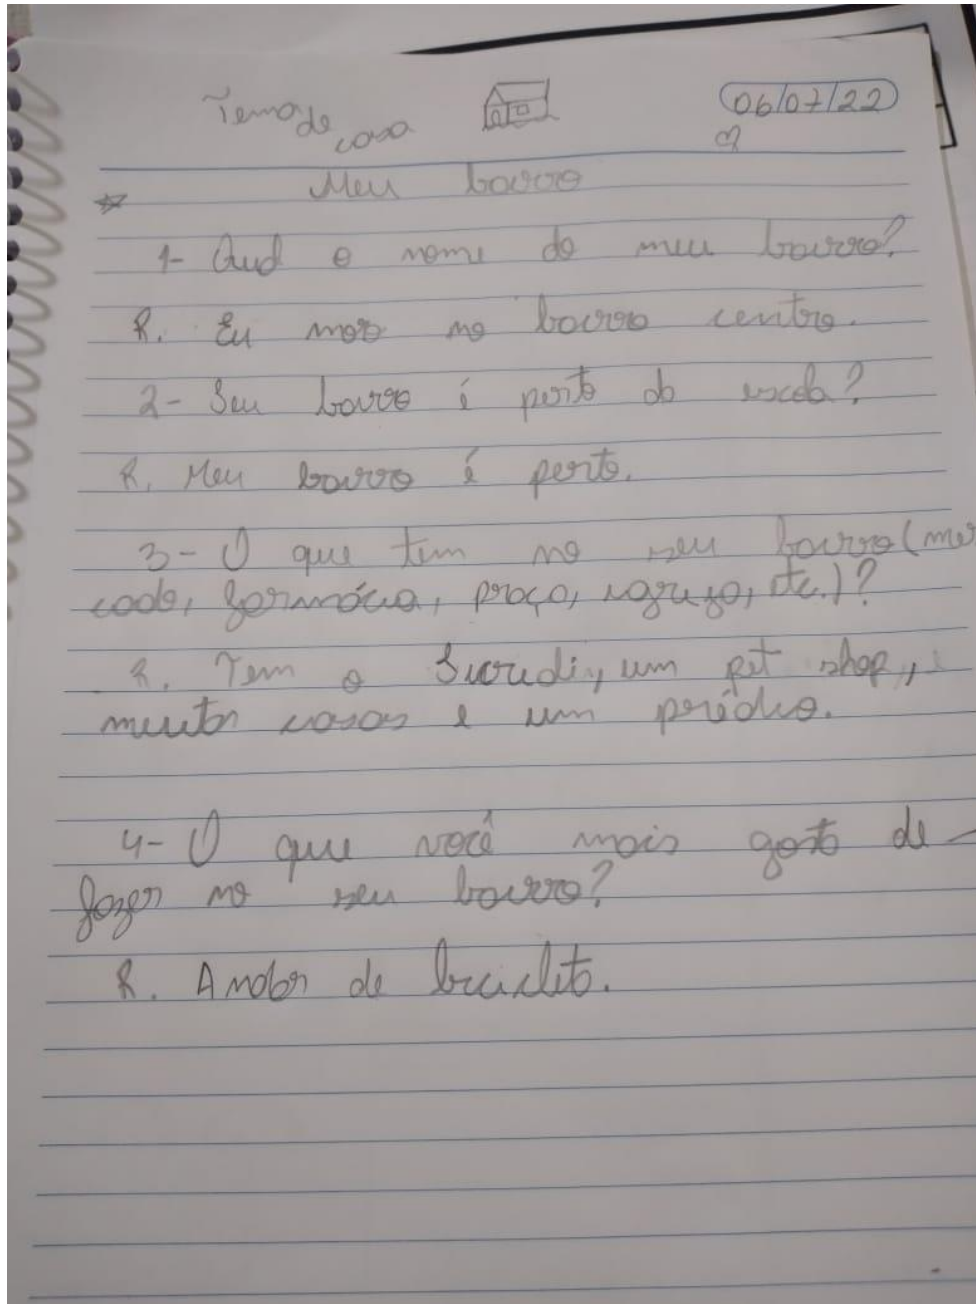 Tema de casa 06/07/22
Meu bairro
1- Qual o nome do meu bairro?
R. Eu moro no bairro centro.
2- Seu bairro é perto da escola?
R. Meu bairro é perto.
3- O que tem no seu bairro (mer
cado, farmácia, praça, igreja, etc.)?
R. Tem o Sicredi, um pet shop,
muitas casas e um prédio.
4- O que você mais gosta de
fazer no seu bairro?
R. Andar de bicicleta.